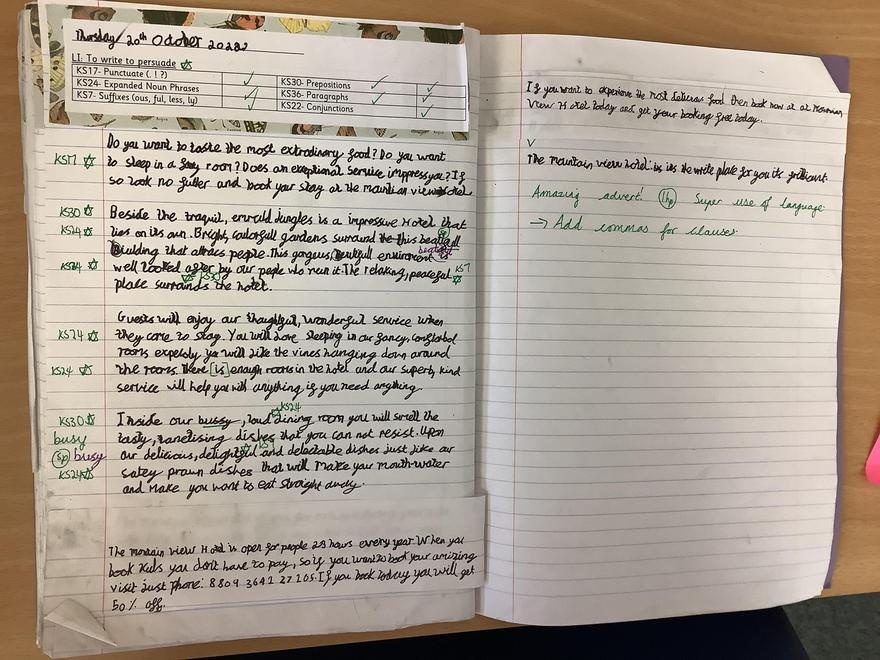 Thursday 20th October 2022
LI: To write to persuade
KS17- Punctuate (. ! ?)
KS24- Expanded Noun Phrases
KS7- Suffixes (ous, ful, less, ly)
KS30- Prepositions
KS36- Paragraphs
KS22- Conjunctions
Do you want to taste the most food? Do you want
KS17 to sleep in a room? Does an exceptional service impress you? If
so look no futher and book your stay at the view Hotel
KS30 Beside the emruld Jungles is a impressive Hotel that
KS24 lies on its own. Bright, gardens surround this
Building that attracs people. This gorgeous, enviroment is
beautiful
sp
KS24 well looked after by our people who run it. The relaxing, peaceful KS7
KS30
place surrounds the hotel.
Guests will enjoy our thoughtful, wonderful service when
KS24 they come to stay. You will love sleeping in our fancy,
rooms you will like the vines hanging down around
KS24 the rooms. There [is] enough rooms in the hotel and our superb, kind
service will help you with anything if you need anything.
KS24
KS30 Inside our bussy, loud dining room you will smell the
busy tasty, dishes that you can not resist. Upon
KS7
sp busy our delicious, delightful and delectable dishes just like our
KS24 prawn dishes that will make your mouth-water
and make you want to eat straight away.
The view Hotel is open for people hours every year. When you
book Kids you don't have to pay, so if you want to book your amizing
visit just phone: 8809 3641 27105. If you book today you will get
50% off.
If you want to experience the most food then book now at
View Hotel today and get your booking free today.
V
The mountain view hotel is the write place for you its
Amazing advert! 1hp Super use of language.
→ Add commas for clauses.